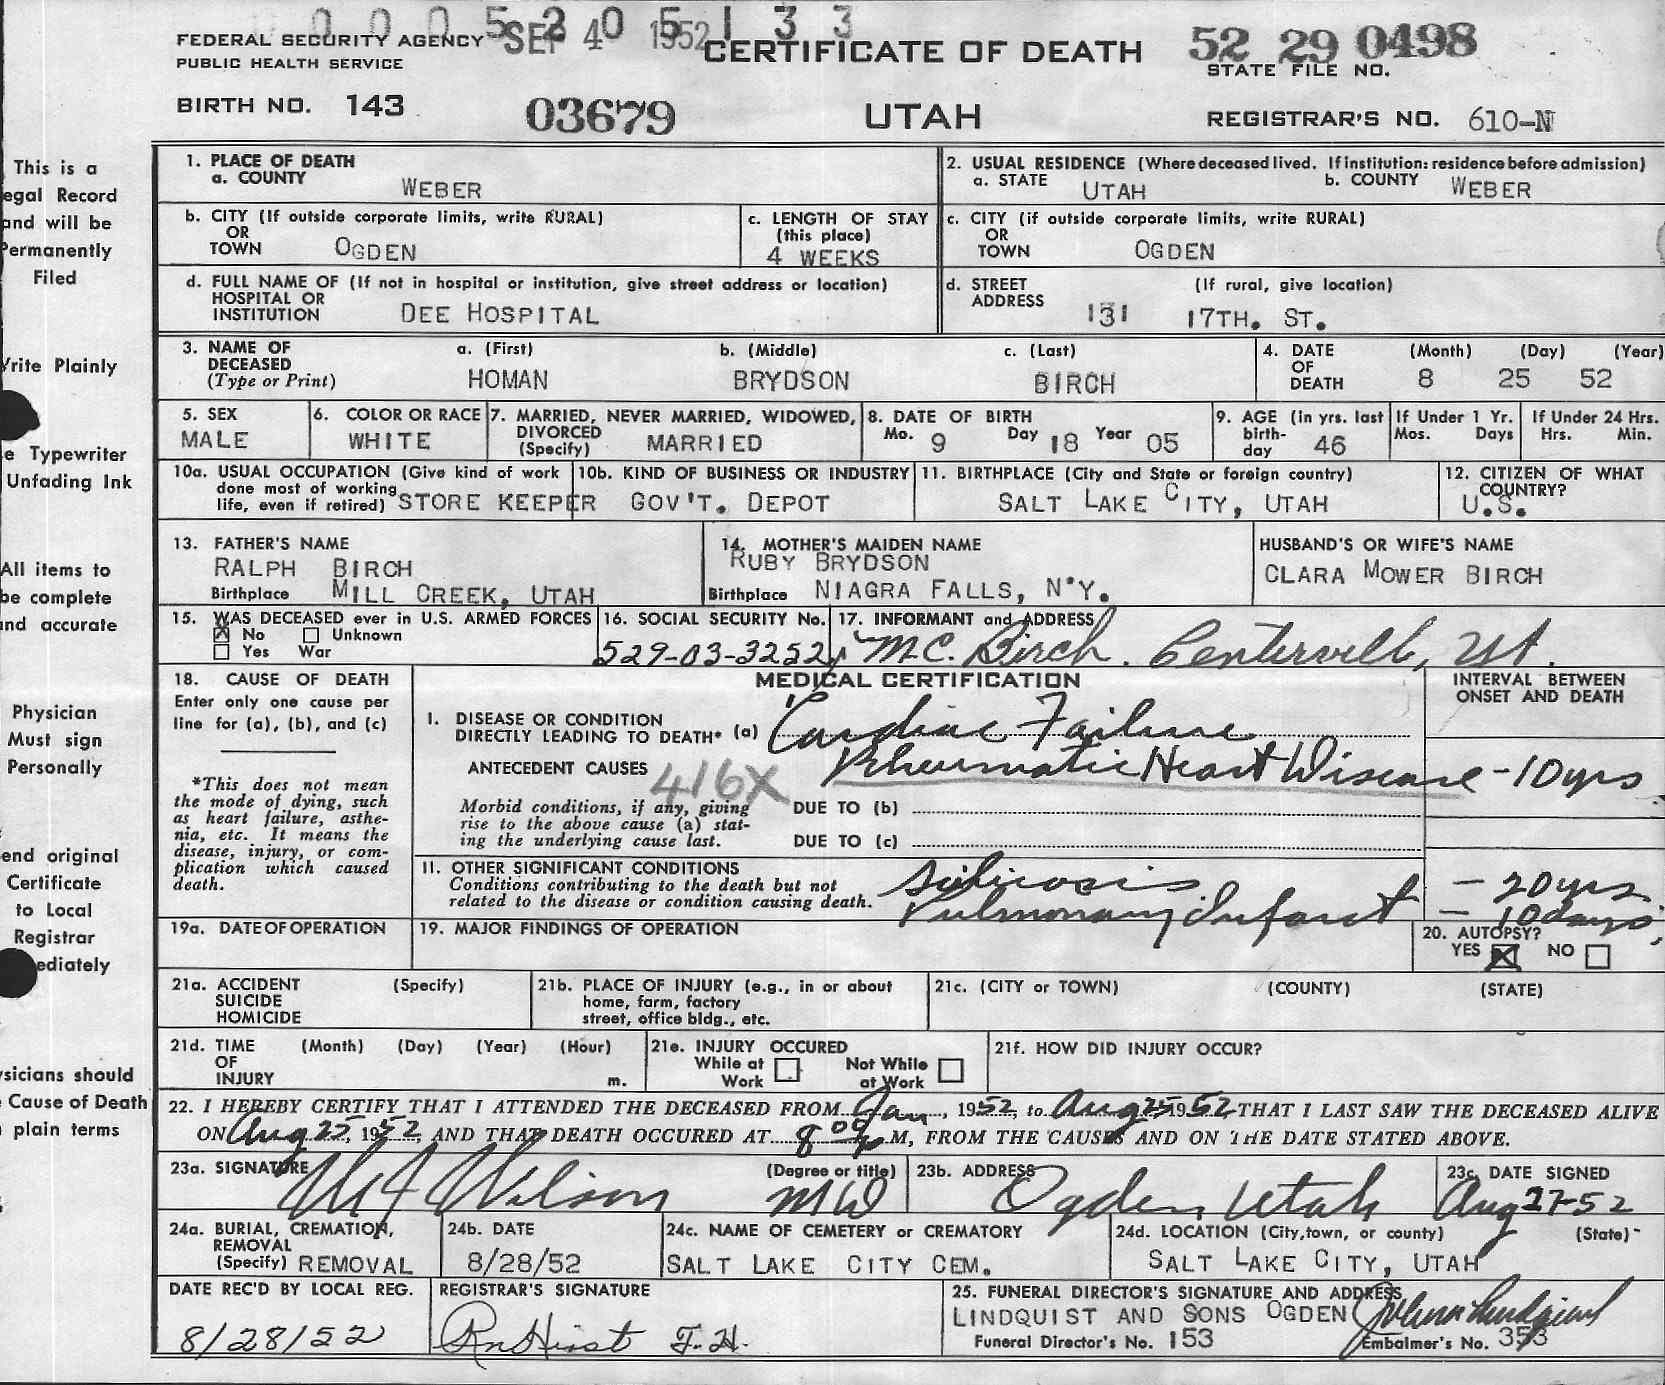 0 0 0 5 2 0 5 1 3 3
SEP 4 1952
FEDERAL SECURITY AGENCY
PUBLIC HEALTH SERVICE
CERTIFICATE OF DEATH
52 29 0498
STATE FILE NO.
BIRTH NO. 143
03679
UTAH
REGISTRAR'S NO. 610-N
This is a
egal Record
and will be
Permanently
Filed
Write Plainly
e Typewriter
Unfading Ink
All items to
be complete
and accurate
Physician
Must sign
Personally
end original
Certificate
to Local
Registrar
ediately
ysicians should
Cause of Death
plain terms
1. PLACE OF DEATH
a. COUNTY WEBER
2. USUAL RESIDENCE (Where deceased lived. If institution: residence before admission)
a. STATE UTAH b. COUNTY WEBER
b. CITY (If outside corporate limits, write RURAL)
OR
TOWN OGDEN
c. LENGTH OF STAY
(this place)
4 WEEKS
c. CITY (if outside corporate limits, write RURAL)
OR
TOWN OGDEN
d. FULL NAME OF (If not in hospital or institution, give street address or location)
HOSPITAL OR
INSTITUTION DEE HOSPITAL
d. STREET (If rural, give location)
ADDRESS 131 17TH. ST.
3. NAME OF DECEASED
(Type or Print)
a. (First) b. (Middle) c. (Last)
HOMAN BRYDSON BIRCH
4. DATE OF DEATH
(Month) (Day) (Year)
8 25 52
5. SEX
MALE
6. COLOR OR RACE
WHITE
7. MARRIED, NEVER MARRIED, WIDOWED,
DIVORCED
(Specify) MARRIED
8. DATE OF BIRTH
Mo. 9 Day 18 Year 05
9. AGE (in yrs. last
birth-
day 46
If Under 1 Yr.
Mos. Days
If Under 24 Hrs.
Hrs. Min.
10a. USUAL OCCUPATION (Give kind of work
done most of working
life, even if retired) STORE KEEPER
10b. KIND OF BUSINESS OR INDUSTRY
GOV'T. DEPOT
11. BIRTHPLACE (City and State or foreign country)
SALT LAKE CITY, UTAH
12. CITIZEN OF WHAT
COUNTRY?
U.S.
13. FATHER'S NAME
RALPH BIRCH
Birthplace MILL CREEK, UTAH
14. MOTHER'S MAIDEN NAME
RUBY BRYDSON
Birthplace NIAGRA FALLS, N.Y.
HUSBAND'S OR WIFE'S NAME
CLARA MOWER BIRCH
15. WAS DECEASED ever in U.S. ARMED FORCES
No Unknown
Yes War
16. SOCIAL SECURITY No.
529-03-3252
17. INFORMANT and ADDRESS
M.C. Birch. Centerville, Ut.
18. CAUSE OF DEATH
Enter only one cause per
line for (a), (b), and (c)
*This does not mean
the mode of dying, such
as heart failure, asthe-
nia, etc. It means the
disease, injury, or com-
plication which caused
death.
MEDICAL CERTIFICATION
INTERVAL BETWEEN
ONSET AND DEATH
I. DISEASE OR CONDITION
DIRECTLY LEADING TO DEATH* (a) Cardiac Failure
ANTECEDENT CAUSES 416X Rheumatic Heart Disease - 10 yrs
Morbid conditions, if any, giving
rise to the above cause (a) stat-
ing the underlying cause last.
DUE TO (b)
DUE TO (c)
11. OTHER SIGNIFICANT CONDITIONS
Conditions contributing to the death but not
related to the disease or condition causing death.
Silicosis - 20 yrs
Pulmonary Infarct - 10 days
19a. DATE OF OPERATION
19. MAJOR FINDINGS OF OPERATION
20. AUTOPSY?
YES NO
21a. ACCIDENT (Specify)
SUICIDE
HOMICIDE
21b. PLACE OF INJURY (e.g., in or about
home, farm, factory
street, office bldg., etc.
21c. (CITY or TOWN) (COUNTY) (STATE)
21d. TIME (Month) (Day) (Year) (Hour)
OF
INJURY m.
21e. INJURY OCCURED
While at Work Not While at Work
21f. HOW DID INJURY OCCUR?
22. I HEREBY CERTIFY THAT I ATTENDED THE DECEASED FROM Jan, 1952, to Aug 25 1952 THAT I LAST SAW THE DECEASED ALIVE
ON Aug 25, 1952, AND THAT DEATH OCCURED AT 8 00 p M, FROM THE CAUSES AND ON THE DATE STATED ABOVE.
23a. SIGNATURE (Degree or title)
Wilson MD
23b. ADDRESS
Ogden, Utah
23c. DATE SIGNED
Aug 27-52
24a. BURIAL, CREMATION,
REMOVAL
(Specify) REMOVAL
24b. DATE
8/28/52
24c. NAME OF CEMETERY or CREMATORY
SALT LAKE CITY CEM.
24d. LOCATION (City, town, or county) (State)
SALT LAKE CITY, UTAH
DATE REC'D BY LOCAL REG.
8/28/52
REGISTRAR'S SIGNATURE
25. FUNERAL DIRECTOR'S SIGNATURE AND ADDRESS
LINDQUIST AND SONS OGDEN
Funeral Director's No. 153
Embalmer's No. 353